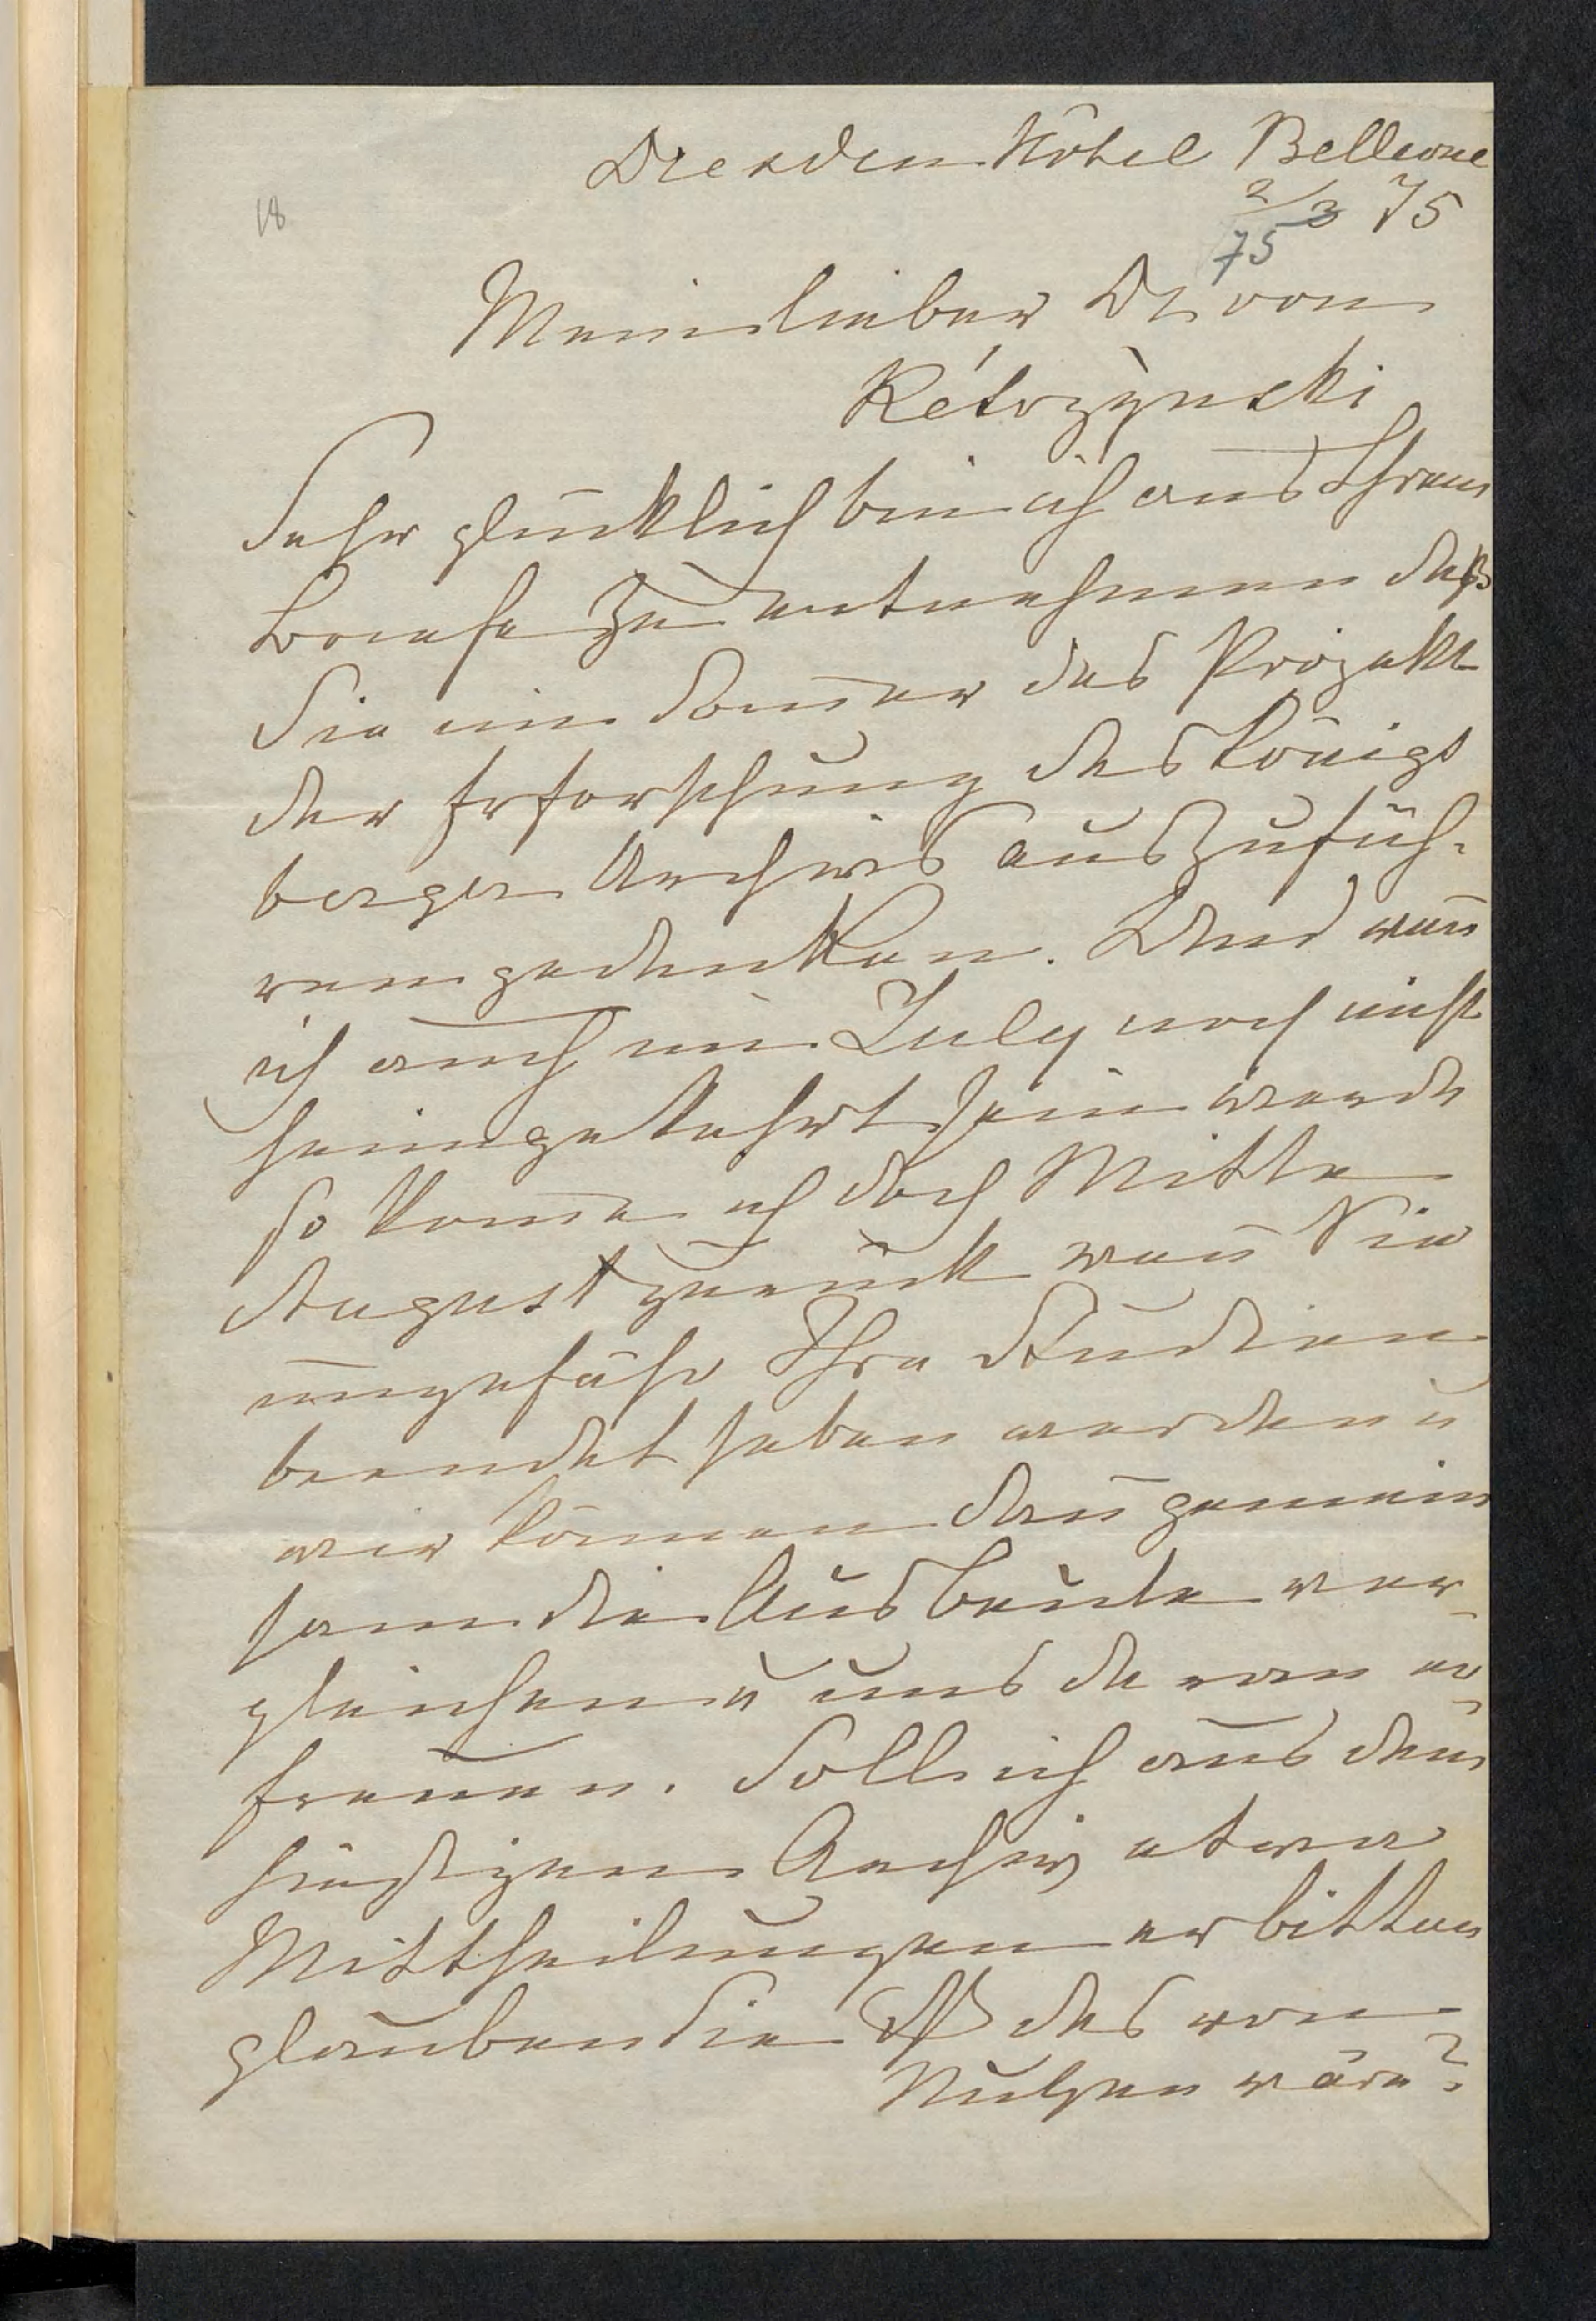 Dresden Hôtel Bellevue
18
2/3 75
75
Mein lieber Dr von
Kétrzÿnski
Sehr glücklich bin ich aus Ihrem
Briefe zu entnehmen daß
Sie im Som̅er das Projekt
der Erforschung des Königs
berger Archivs auszufüh-
ren gedenken. Und wen̅
ich auch im July noch nicht
heimgekehrt sein werde
so kom̅e ich doch Mitte
August zurück wen̅ Sie
ungefähr Ihre Studien
beendet haben werden u
wir können dan̅ gemein
sam die Ausbeute ver-
gleichen u uns daran er-
freuen. Soll ich aus dem
hiesigen Archiv etwa
Mittheilungen erbitten
glauben Sie daß das von
Nutzen wäre?